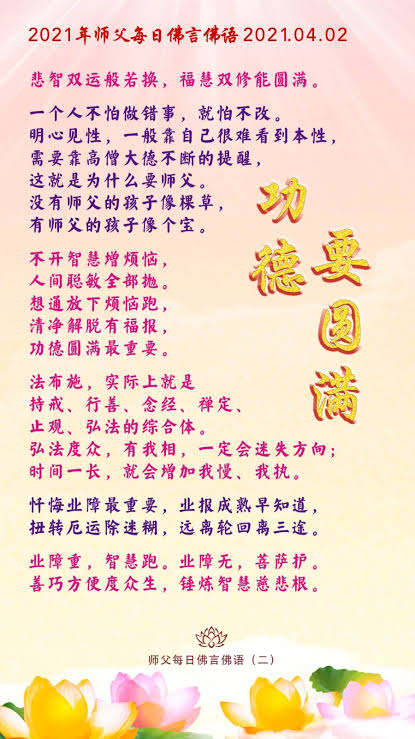 2021年师父每日佛言佛语 2021.04.02
悲智双运般若换，福慧双修能圆满。
一个人不怕做错事，就怕不改。
明心见性，一般靠自己很难看到本性，
需要靠高僧大德不断的提醒，
这就是为什么要师父。
没有师父的孩子像棵草，
有师父的孩子像个宝。
功德
要圆满
不开智慧增烦恼，
人间聪敏全部抛。
想通放下烦恼跑，
清净解脱有福报，
功德圆满最重要。
法布施，实际上就是
持戒、行善、念经、禅定、
止观、弘法的综合体。
弘法度众，有我相，一定会迷失方向；
时间一长，就会增加我慢、我执。
忏悔业障最重要，业报成熟早知道，
扭转厄运除迷糊，远离轮回离三途。
业障重，智慧跑。业障无，菩萨护。
善巧方便度众生，锤炼智慧慈悲根。
师父每日佛言佛语（二）